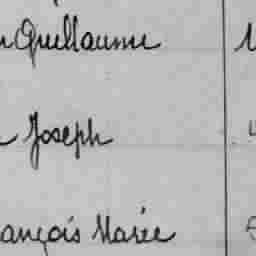 Guillaume
Joseph
ançois Marie